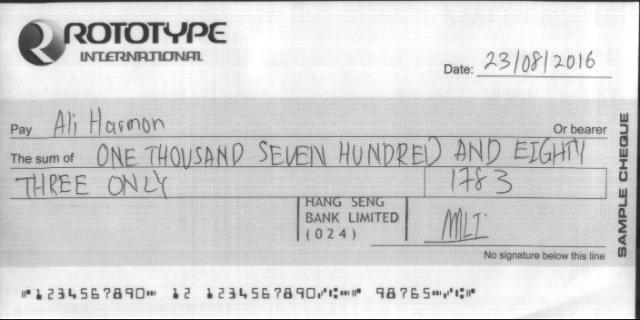 ROTOTYPE
INTERNATIONAL
Date: 23/08/2016
Pay Ali Harmon Or bearer
The sum of ONE THOUSAND SEVEN HUNDRED AND EIGHTY
THREE ONLY 1783
HANG SENG
BANK LIMITED
(024)
MLI
No signature below this line
SAMPLE CHEQUE
⑈1234567890⑈ 12 1234567890⑇⑆⑈ 98765⑈⑇⑆